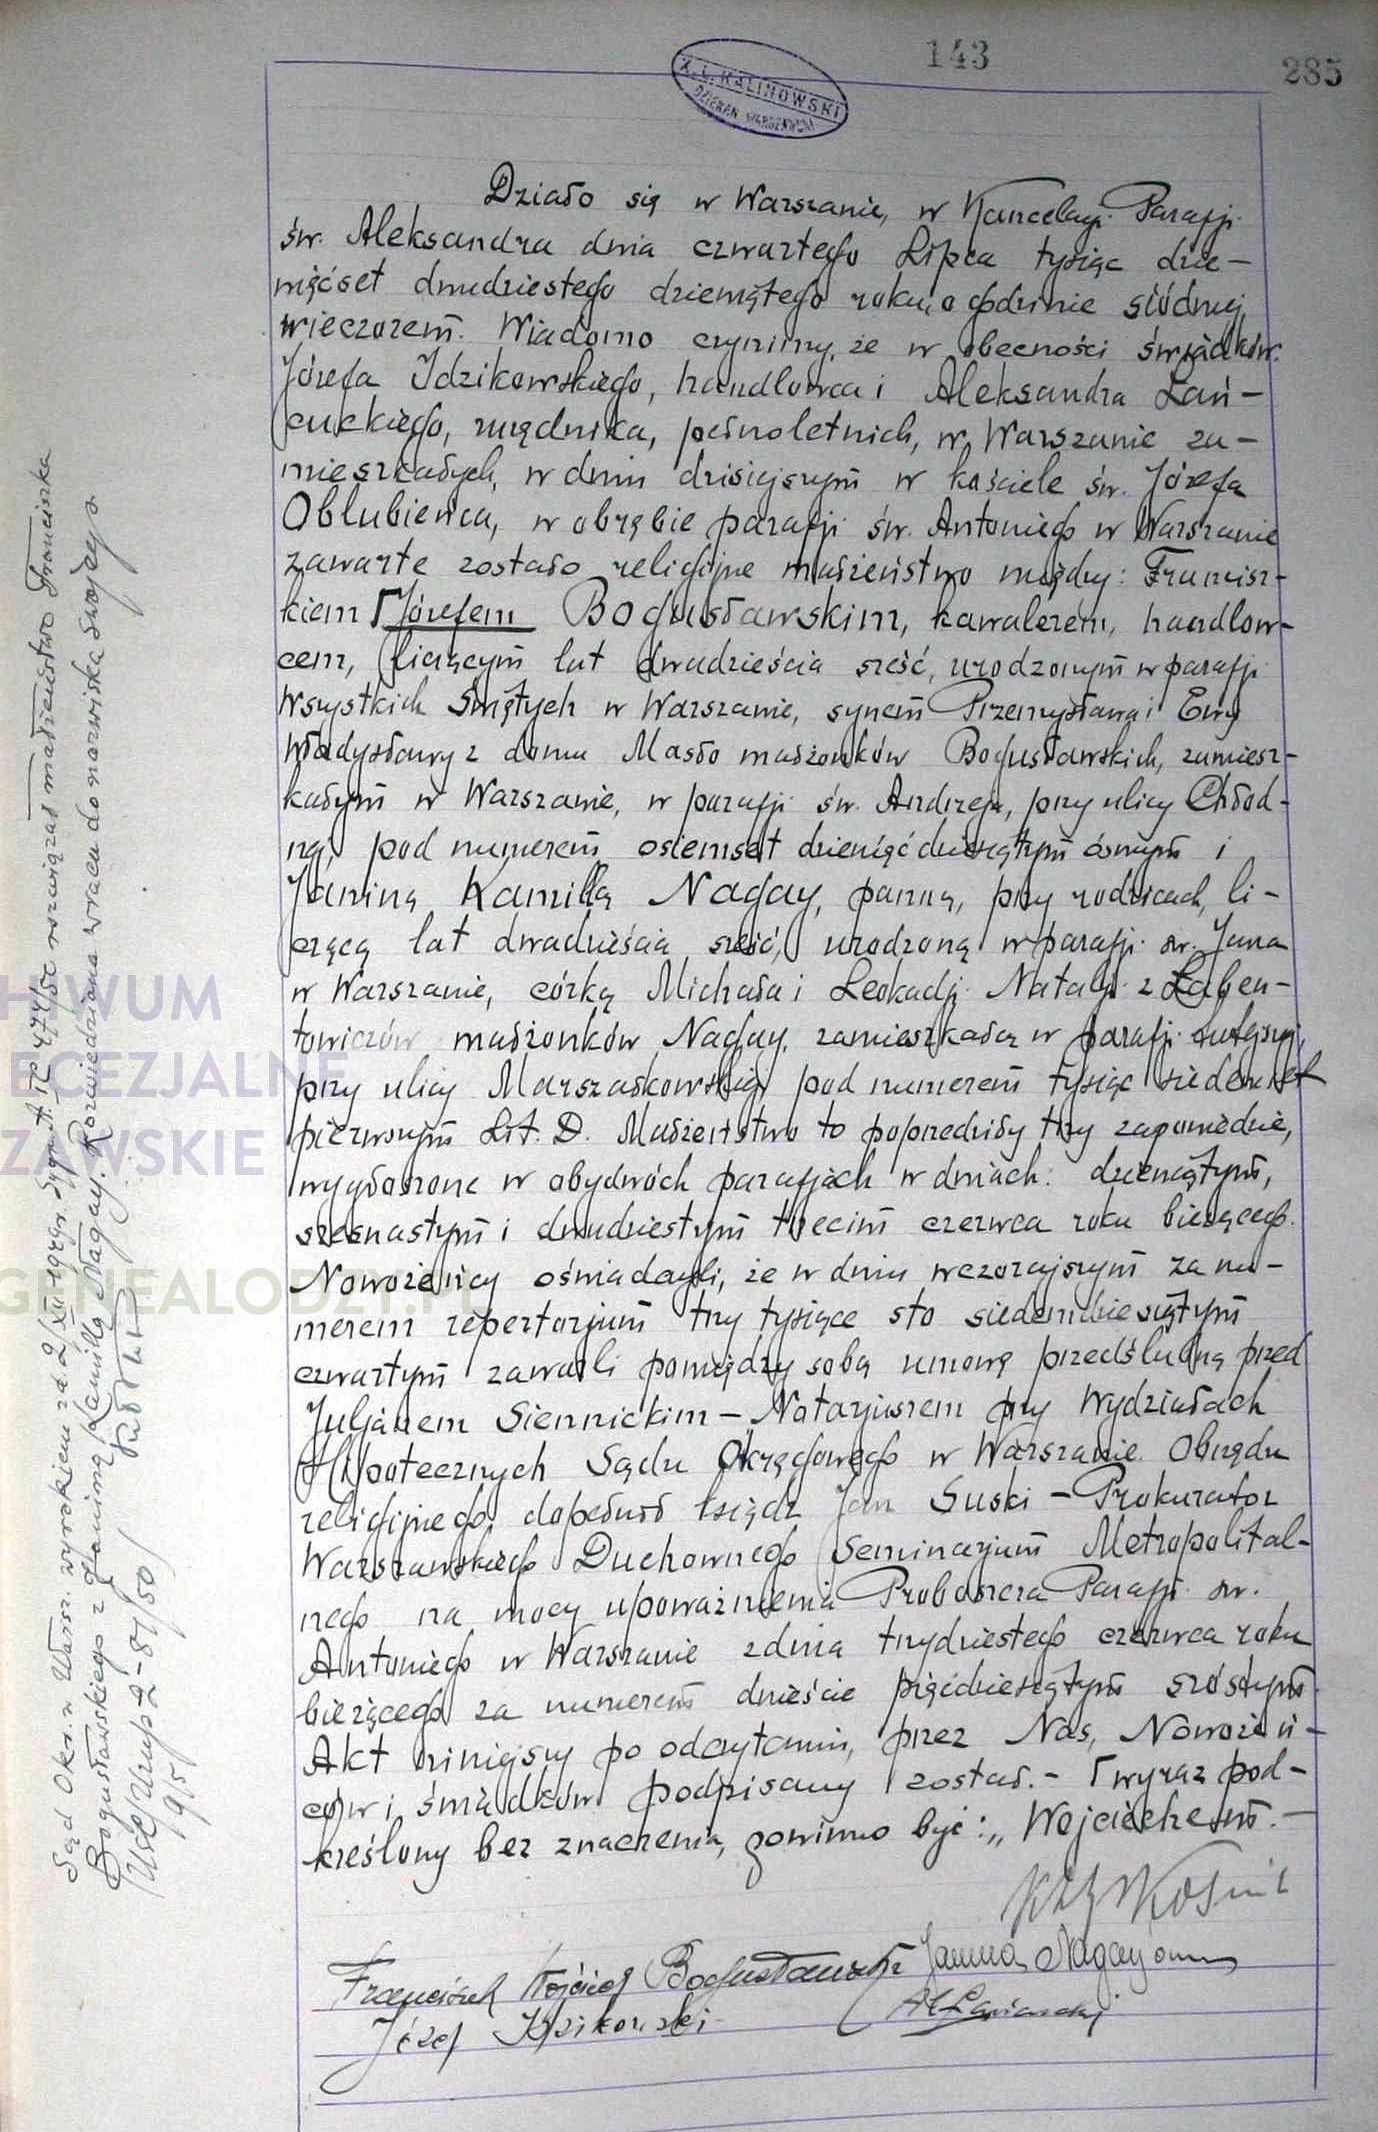 143
285
X. L. KALINOWSKI
DZIEKAN WARSZAWSKI
Działo się w Warszawie, w Kancelarji Parafji
św. Aleksandra dnia czwartego Lipca tysiąc dzie-
więćset dwudziestego dziewiątego roku, o godzinie siódmej
wieczorem. Wiadomo czynimy, że w obecności świadków:
Józefa Idzikowskiego, handlowca i Aleksandra Łań-
cuckiego, urzędnika, pełnoletnich, w Warszawie za-
mieszkałych, w dniu dzisiejszym w kościele św. Józefa
Oblubieńca, w obrębie parafji św. Antoniego w Warszawie
zawarte zostało religijne małżeństwo między: Francisz-
kiem Józefem Bogusławskim, kawalerem, handlow-
cem, liczącym lat dwadzieścia sześć, urodzonym w parafji
Wszystkich Świętych w Warszawie, synem Przemysława i Ewy
Władysławy z domu Masło małżonków Bogusławskich, zamiesz-
kałym w Warszawie, w parafji św. Andrzeja, przy ulicy Chłod-
nej, pod numerem osiemset dziewięćdziesiątym ósmym i
Janiną Kamillą Nagay, panną, przy rodzicach, li-
czącą lat dwadzieścia sześć, urodzoną w parafji św. Jana
w Warszawie, córką Michała i Leokadji Natalji z Łaben-
towiczów małżonków Nagay, zamieszkałą w parafji tutejszej,
przy ulicy Marszałkowskiej pod numerem tysiąc siedemset
pierwszym Lit. D. Małżeństwo to poprzedziły trzy zapowiedzie,
wygłoszone w obydwóch parafjach w dniach: dziewiątym,
szesnastym i dwudziestym trzecim czerwca roku bieżącego.
Nowożeńcy oświadczyli, że w dniu wczorajszym za nu-
merem repertorjum trzy tysiące sto siedemdziesiątym
czwartym zawarli pomiędzy sobą umowę przedślubną przed
Juljanem Siennickim – Notarjuszem przy Wydziałach
Hipotecznych Sądu Okręgowego w Warszawie. Obrzędu
religijnego dopełnił ksiądz Jan Suski – Prokurator
Warszawskiego Duchownego Seminarjum Metropolital-
nego na mocy upoważnienia Proboszcza Parafji św.
Antoniego w Warszawie z dnia trzydziestego czerwca roku
bieżącego za numerem dwieście pięćdziesiątym szóstym.
Akt niniejszy po odczytaniu, przez Nas, Nowożeń-
ców i świadków podpisany został. – Γ wyraz pod-
kreślony bez znaczenia, powinno być: „Wojciechem". –
Franciszek Wojciech Bogusławski Janina Nagayówna
Józef Idzikowski
Sąd Okr. w Warsz. wyrokiem za 2/XII 1949r. Sygn. A. IC 477/50 rozwiązał małżeństwo Franciszka
Bogusławskiego z Janiną Kamillą Nagay. Rozwiedziona wraca do nazwiska swojego
9/5/50
HIWUM
ECEZJALNE
ZAWSKIE
GENEALODZY.PL